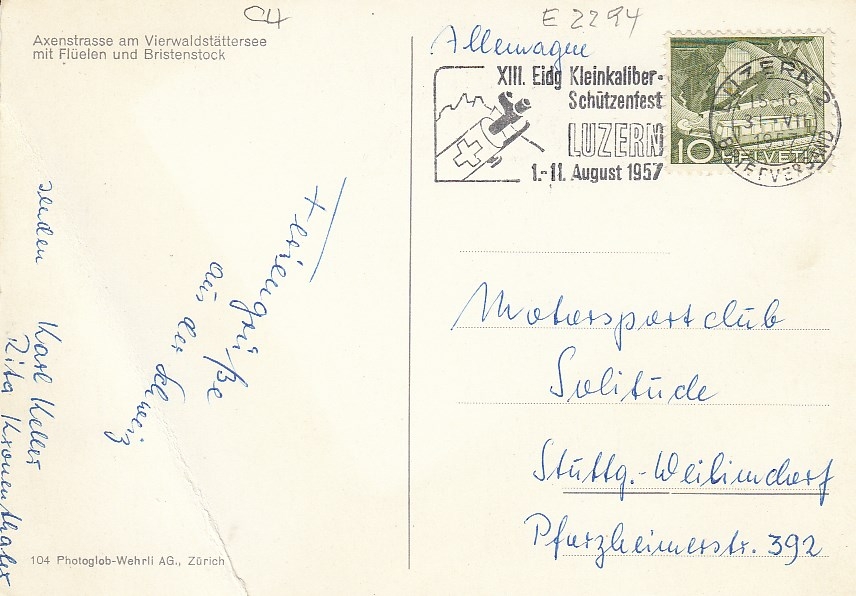 CH
E 2294
Axenstrasse am Vierwaldstättersee
mit Flüelen und Bristenstock
Allemagne
XIII. Eidg Kleinkaliber-
Schützenfest
LUZERN
1.-11. August 1957
LUZERN 2
15-16
31.VII
1957
BRIEFVERSAND
10 HELVETIA
Feriengrüße
aus der Schweiz
senden Karl Keller
Rita Kronenthaler
Motorsportclub
Solitüde
Stuttg.-Weilimdorf
Pforzheimerstr. 392
104 Photoglob-Wehrli AG., Zürich